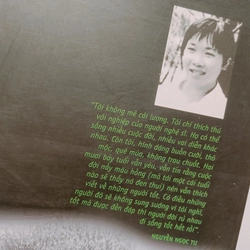 "Tôi không mê cải lương. Tôi chỉ thích thú
với nghiệp của người nghệ sĩ. Họ có thể
sống nhiều cuộc đời, nhiều vai diễn khác
nhau. Còn tôi, hình dáng buồn cười, thô
mộc, quê mùa, không trau chuốt. Hai
mươi bảy tuổi vẫn yêu, vẫn tin rằng cuộc
đời nầy màu hồng (mà tới một cái tuổi
nào sẽ thấy nó đen thui) nên vẫn thích
viết về những người tốt. Có điều những
người đó sẽ không sung sướng vì cái nghĩ,
tốt mà được đền đáp thì người đời rủ nhau
đi sống tốt hết rồi"
NGUYỄN NGỌC TƯ